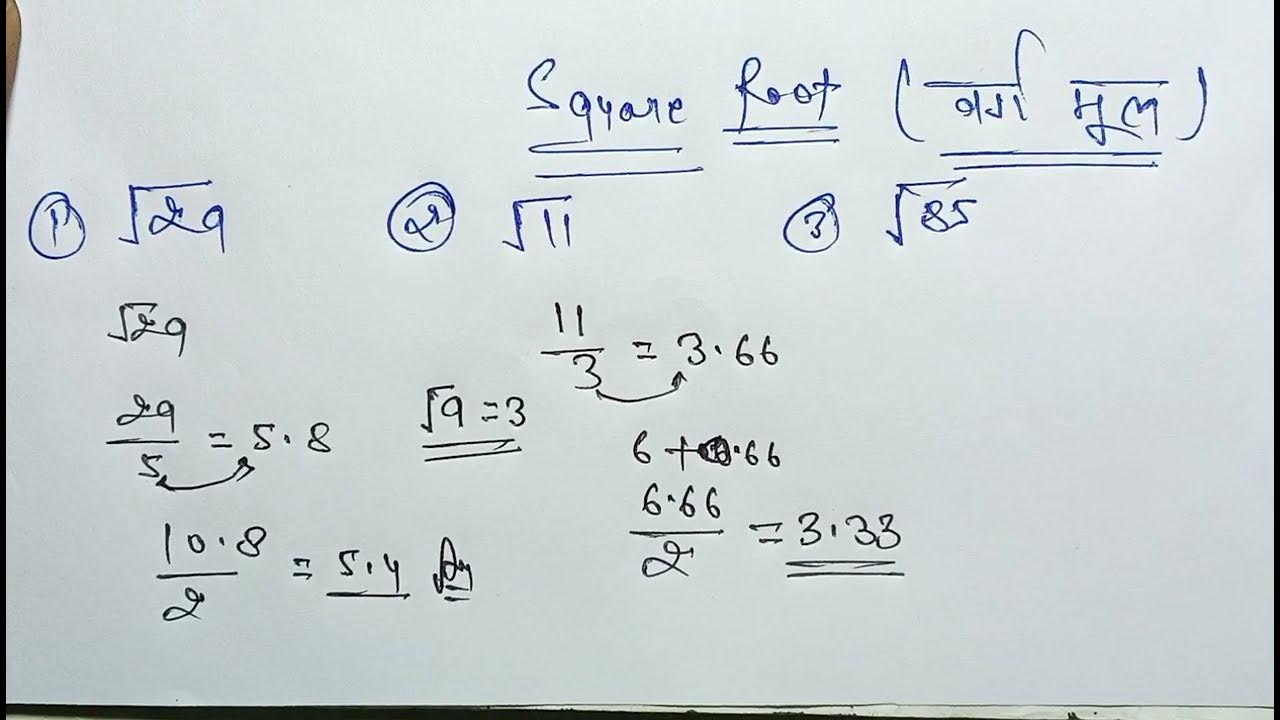 Square Root (वर्ग मूल)
① √29 ② √11 ③ √85
√29
29/5 = 5.8
10.8/2 = 5.4
√9 = 3
11/3 = 3.66
6 + .66
6.66/2 = 3.33